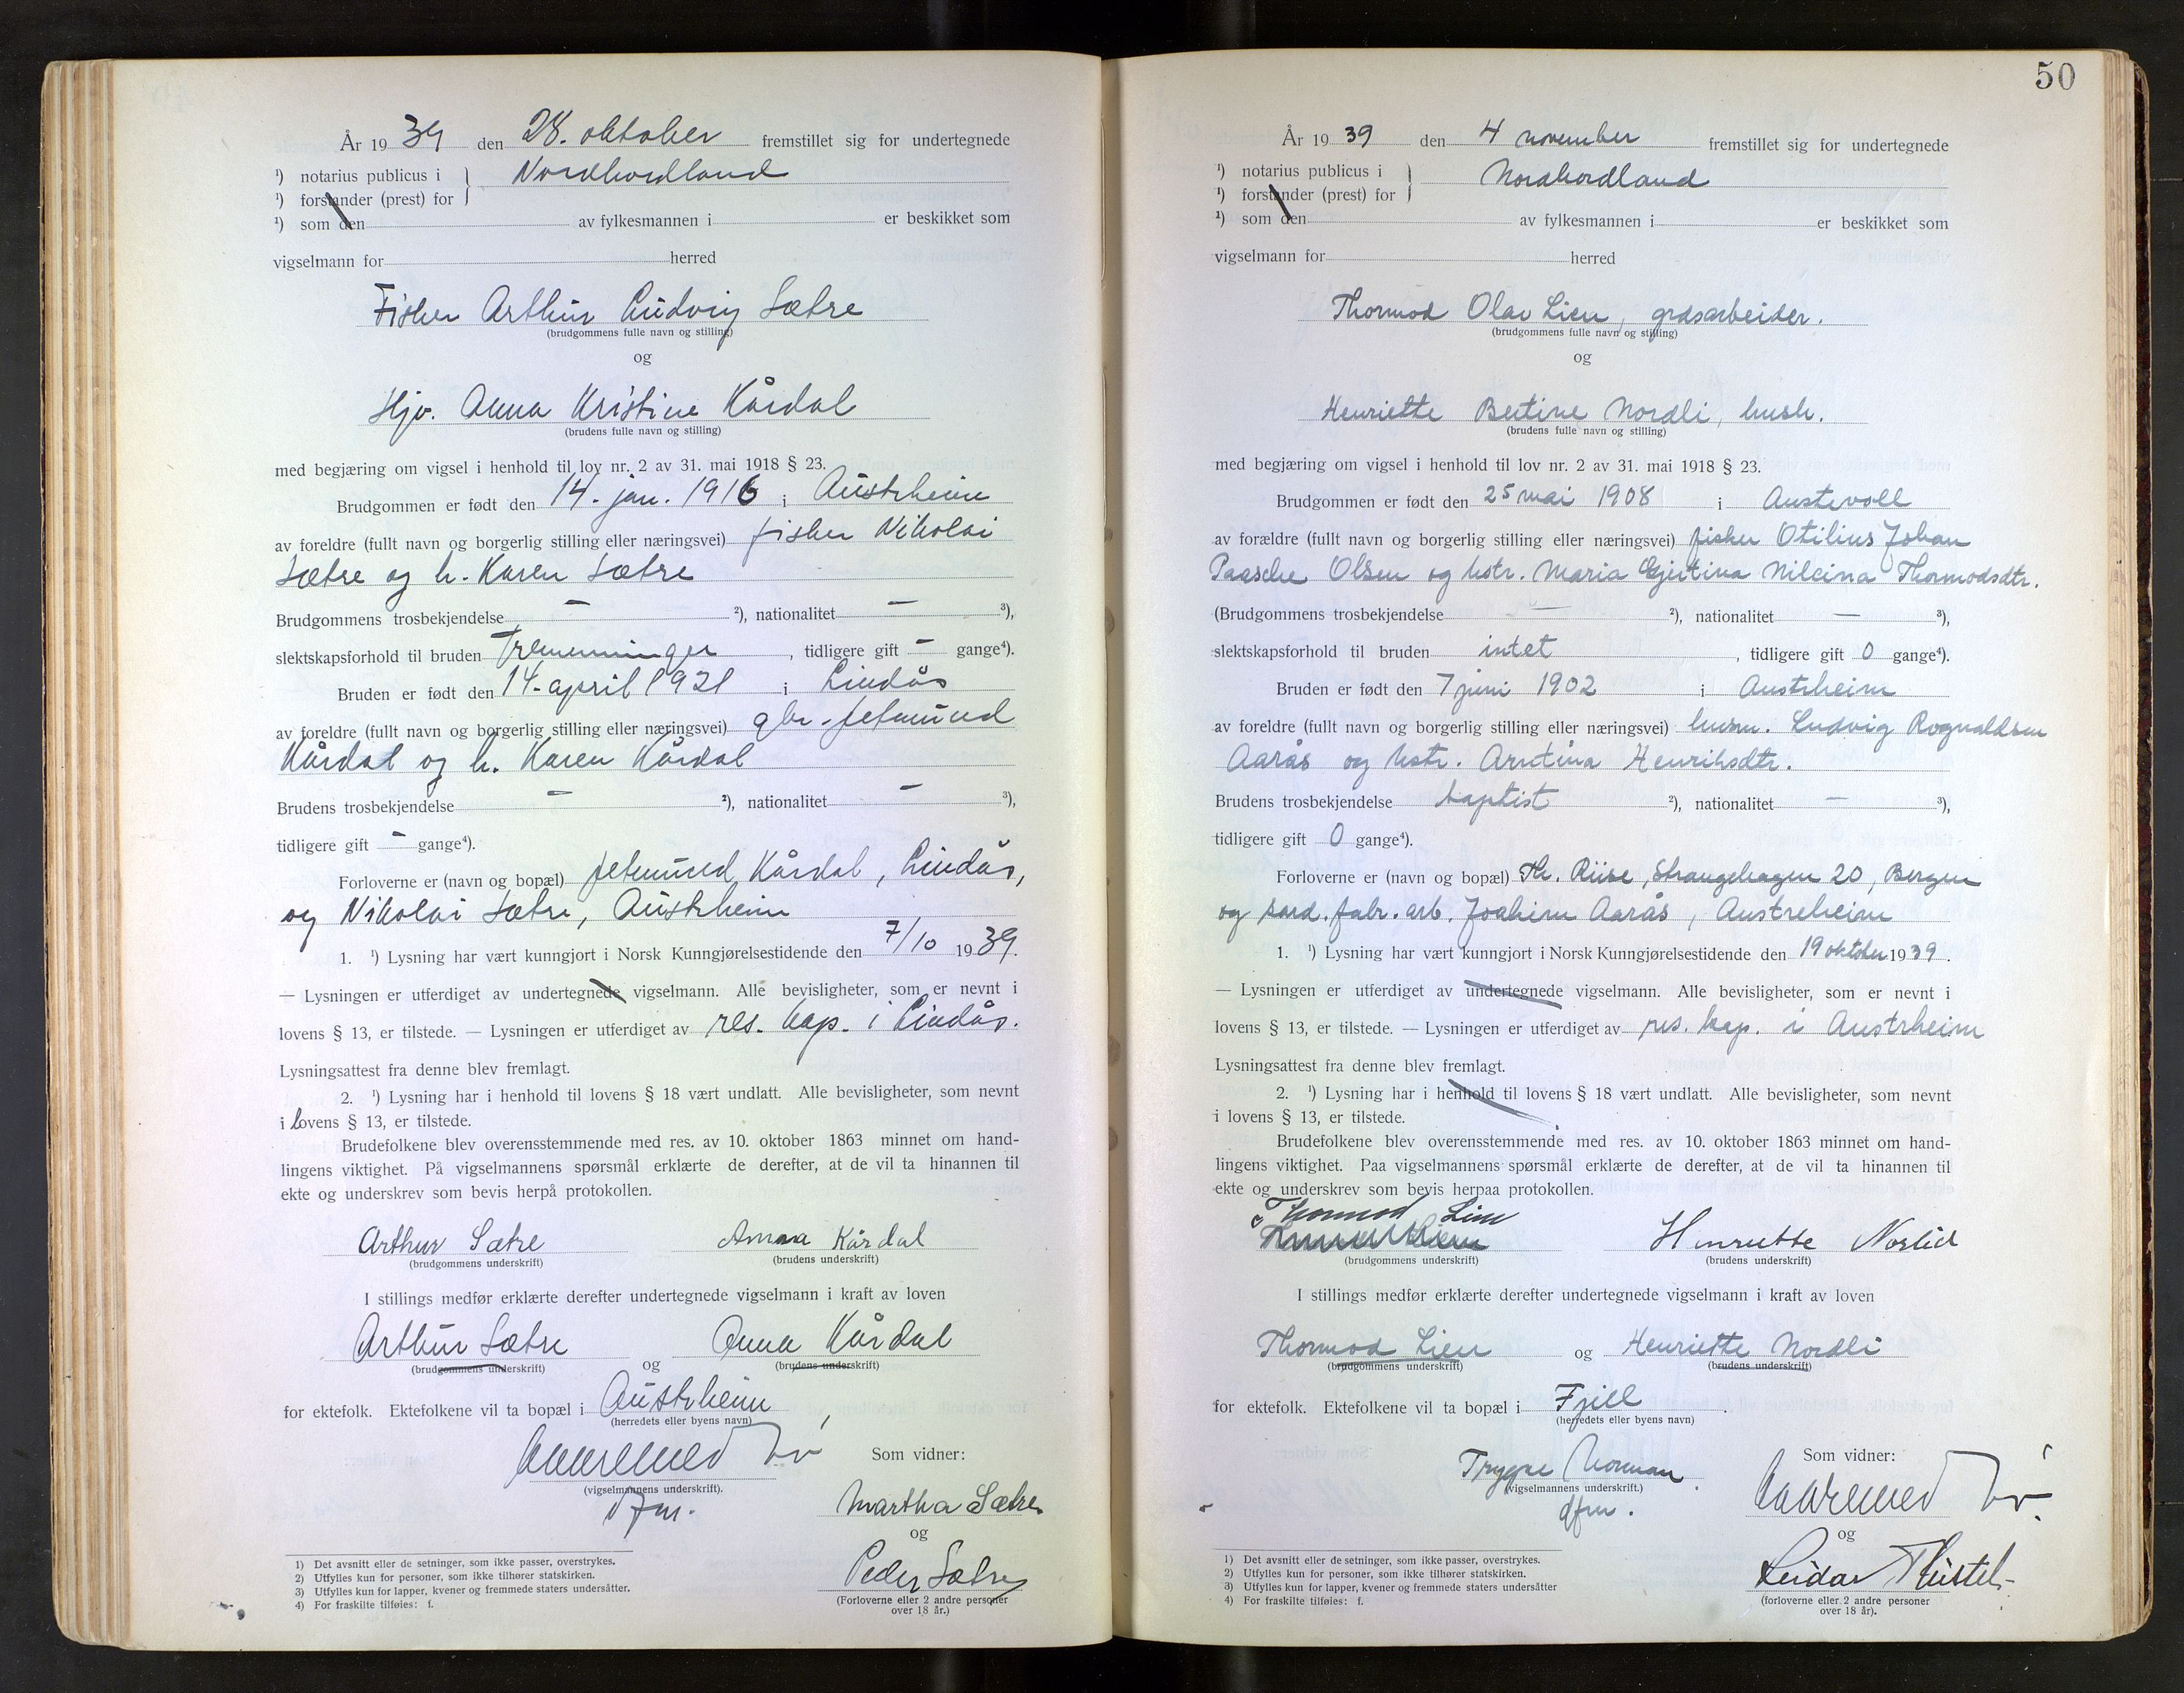 År 19 39 den 28. oktober fremstillet sig for undertegnede
¹) notarius publicus i } Nordhordland
¹) forstander (prest) for
¹) som den av fylkesmannen i er beskikket som
vigselmann for herred
Fisker Arthur Ludvig Sætre
(brudgommens fulle navn og stilling)
og
Hjv. Anna Kristine Kårdal
(brudens fulle navn og stilling)
med begjæring om vigsel i henhold til lov nr. 2 av 31. mai 1918 § 23.
Brudgommen er født den 14. jan. 1916 i Austrheim
av foreldre (fullt navn og borgerlig stilling eller næringsvei) fisker Nikolai
Sætre og h. Karen Sætre
Brudgommens trosbekjendelse — ²), nationalitet — ³),
slektskapsforhold til bruden Tremenninger, tidligere gift — gange⁴).
Bruden er født den 14. april 1921 i Lindås
av foreldre (fullt navn og borgerlig stilling eller næringsvei) gbr. Jetmund
Kårdal og h. Karen Kårdal
Brudens trosbekjendelse — ²), nationalitet — ³),
tidligere gift — gange⁴).
Forloverne er (navn og bopæl) Jetmund Kårdal, Lindås,
og Nikolai Sætre, Austrheim
1. ¹) Lysning har vært kunngjort i Norsk Kunngjørelsestidende den 7/10 1939.
— Lysningen er utferdiget av undertegnede vigselmann. Alle bevisligheter, som er nevnt i
lovens § 13, er tilstede. — Lysningen er utferdiget av res. kap. i Lindås.
Lysningsattest fra denne blev fremlagt.
2. ¹) Lysning har i henhold til lovens § 18 vært undlatt. Alle bevisligheter, som nevnt
i lovens § 13, er tilstede.
Brudefolkene blev overensstemmende med res. av 10. oktober 1863 minnet om hand-
lingens viktighet. På vigselmannens spørsmål erklærte de derefter, at de vil ta hinannen til
ekte og underskrev som bevis herpå protokollen.
Arthur Sætre Anna Kårdal
(brudgommens underskrift) (brudens underskrift)
I stillings medfør erklærte derefter undertegnede vigselmann i kraft av loven
Arthur Sætre og Anna Kårdal
(brudgommens underskrift) (brudens underskrift)
for ektefolk. Ektefolkene vil ta bopæl i Austrheim
(herredets eller byens navn)
Som vidner:
(vigselmannens underskrift).
dfm.
Martha Sætre
og
Peder Sætre
(Forloverne eller 2 andre personer
over 18 år.)
1) Det avsnitt eller de setninger, som ikke passer, overstrykes.
2) Utfylles kun for personer, som ikke tilhører statskirken.
3) Utfylles kun for lapper, kvener og fremmede staters undersåtter.
4) For fraskilte tilføies: f.
50
År 19 39 den 4 november fremstillet sig for undertegnede
¹) notarius publicus i } Nordhordland
¹) forstander (prest) for
¹) som den av fylkesmannen i er beskikket som
vigselmann for herred
Thormod Olav Lien, grdsarbeider.
(brudgommens fulle navn og stilling)
og
Henriette Bertine Nordli, hush.
(brudens fulle navn og stilling)
med begjæring om vigsel i henhold til lov nr. 2 av 31. mai 1918 § 23.
Brudgommen er født den 25 mai 1908 i Austevoll
av forældre (fullt navn og borgerlig stilling eller næringsvei) fisker Otilius Johan
Paasche Olsen og hstr. Maria Gjertina Nilcina Thormodsdtr.
(Brudgommens trosbekjendelse — ²), nationalitet — ³),
slektskapsforhold til bruden intet, tidligere gift 0 gange⁴).
Bruden er født den 7 juni 1902 i Austrheim
av foreldre (fullt navn og borgerlig stilling eller næringsvei) husm. Ludvig Rognaldsen
Aarås og hstr. Arntina Henriksdtr.
Brudens trosbekjendelse baptist ²), nationalitet — ³),
tidligere gift 0 gange⁴).
Forloverne er (navn og bopæl) Th. Riise, Strangehagen 20, Bergen
og sard. fabr. arb. Joakim Aarås, Austreheim
1. ¹) Lysning har vært kunngjort i Norsk Kunngjørelsestidende den 19 oktober 1939.
— Lysningen er utferdiget av undertegnede vigselmann. Alle bevisligheter, som er nevnt i
lovens § 13, er tilstede. — Lysningen er utferdiget av res. kap. i Austrheim
Lysningsattest fra denne blev fremlagt.
2. ¹) Lysning har i henhold til lovens § 18 vært undlatt. Alle bevisligheter, som nevnt
i lovens § 13, er tilstede.
Brudefolkene blev overensstemmende med res. av 10. oktober 1863 minnet om hand-
lingens viktighet. Paa vigselmannens spørsmål erklærte de derefter, at de vil ta hinannen til
ekte og underskrev som bevis herpaa protokollen.
Thormod Lien
Henriette Norlid
(brudgommens underskrift) (brudens underskrift)
I stillings medfør erklærte derefter undertegnede vigselmann i kraft av loven
Thormod Lien og Henriette Nordli
(brudgommens underskrift) (brudens underskrift)
for ektefolk. Ektefolkene vil ta bopæl i Fjell.
(herredets eller byens navn)
Som vidner:
Trygve Norman
(vigselmannens underskrift.)
dfm.
og
Leidar Thistel
(forloverne eller 2 andre personer
over 18 år).
1) Det avsnitt eller de setninger, som ikke passer, overstrykes.
2) Utfylles kun for personer, som ikke tilhører statskirken.
3) Utfylles kun for lapper, kvener og fremmede staters undersåtter
4) For fraskilte tilføies: f.